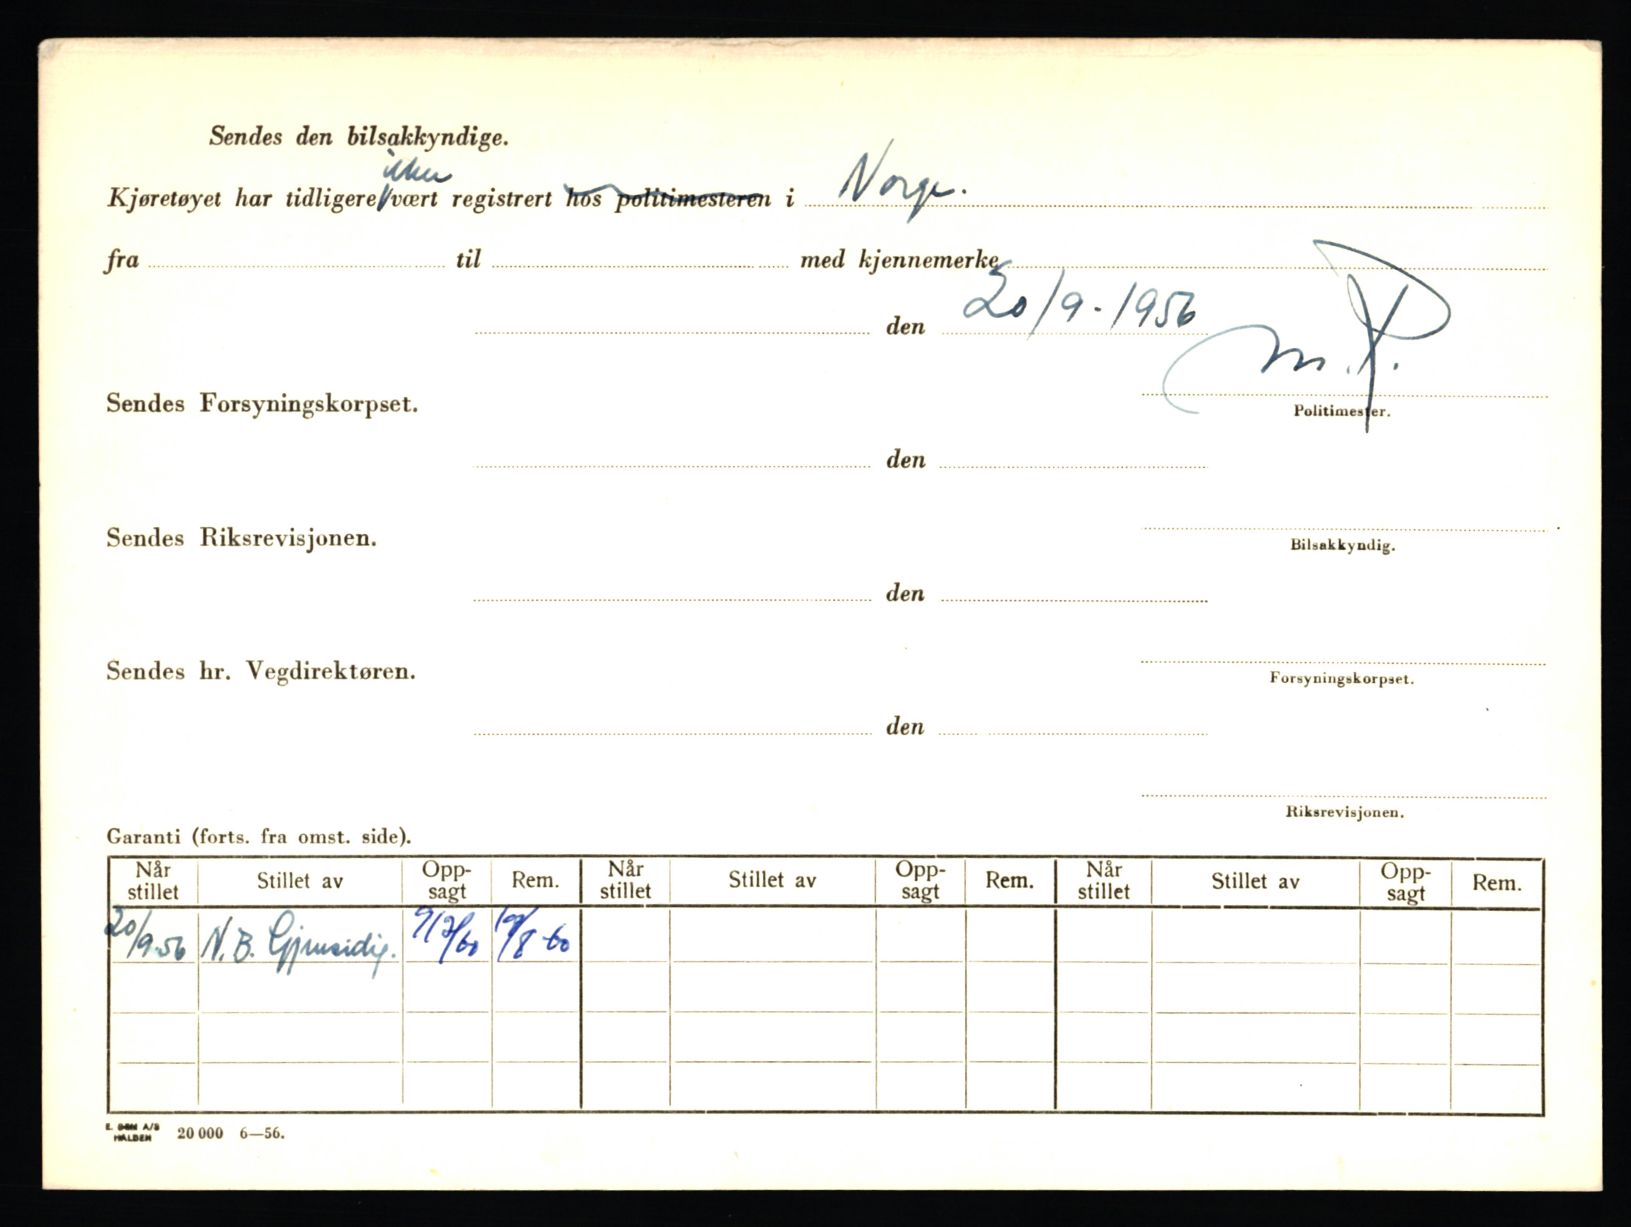 Sendes den bilsakkyndige.
ikke
Kjøretøyet har tidligere vært registrert hos politimesteren i Norge.
fra til med kjennemerke
den 20/9-1956
M.P.
Sendes Forsyningskorpset.
Politimester.
den
Sendes Riksrevisjonen.
Bilsakkyndig.
den
Sendes hr. Vegdirektøren.
Forsyningskorpset.
den
Riksrevisjonen.
Garanti (forts. fra omst. side).
Når stillet Stillet av Opp-sagt Rem. Når stillet Stillet av Opp-sagt Rem. Når stillet Stillet av Opp-sagt Rem.
20/9-56 N.B. Gjensidig. 9/7/60 /8-60
E. SEM A/S
HALDEN 20 000 6—56.